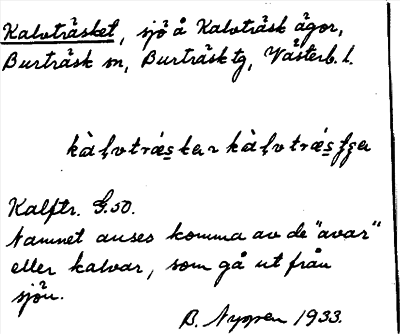 Kalvträsket, sjö å Kalvträsk ägor,
Burträsk sn, Burträsk tg, Västerb. l.
kàḷvtrǽs̱ka, kàḷvtrǽs̱
Kalftr. G.50.
Namnet anses komma av de "avar"
eller kalvar, som gå ut från
sjön.
B. Nyppen 1933.